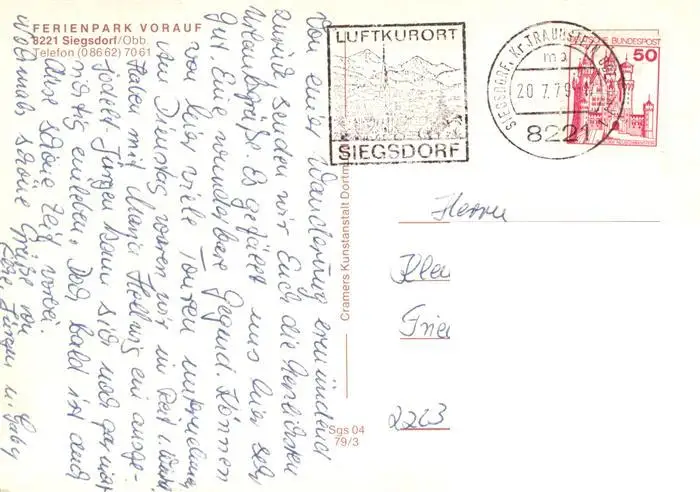 FERIENPARK VORAUF
8221 Siegsdorf/Obb.
Telefon (08662) 7061
Von einer Wanderung ermüdend
zurück senden wir Euch die herzlichsten
Urlaubsgrüße. Es gefällt uns hier sehr
gut. Eine wunderbare Gegend. Können
von hier viele Touren unternehmen
Am Dienstag waren wir in Reit i. Winkl
haben mit Maria Hellwig ein
jodelt. Jürgen kann sich noch gar nicht
richtig einleben. Doch bald ist auch
diese schöne Zeit vorbei.
Nochmals schöne Grüße von
Jürgen u. Gaby
Cramers Kunstanstalt Dortm
Sgs 04
79/3
LUFTKURORT
SIEGSDORF
SIEGSDORF, Kr. TRAUNSTEIN
ma
20.7.79
8221
DEUTSCHE BUNDESPOST
50
Herrn
2223